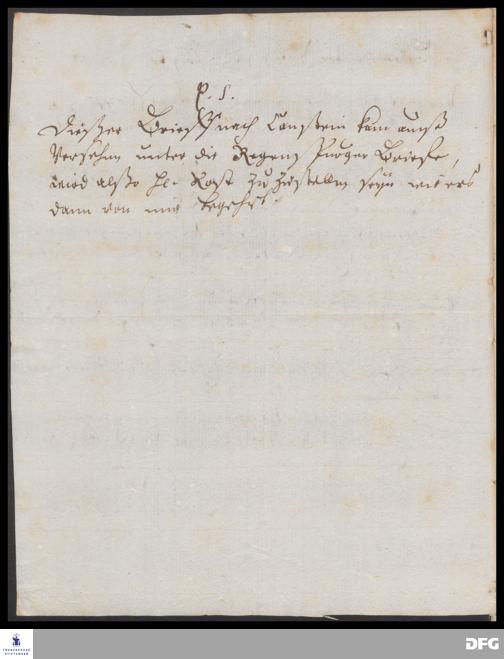 P. S.
Dießer Brieff nach Canstein kam auß
Versehen unter die Regens Purger Brieffe,
wird alßo H. Rost zu zustellen seyn wie er's
dann von mir begehrt.
FRANCKESCHE STIFTUNGEN
DFG